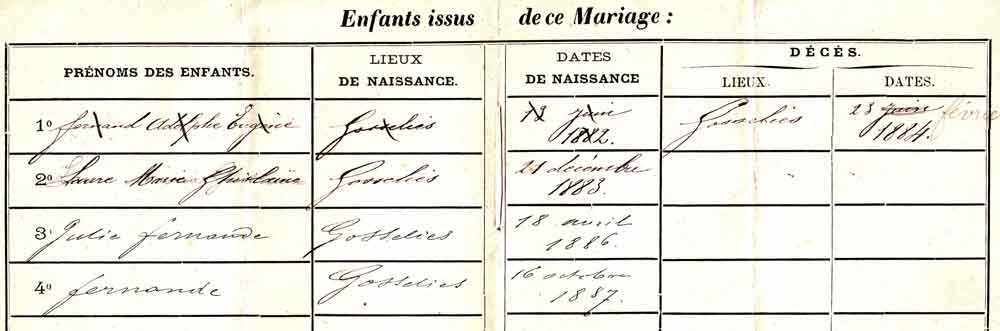 Enfants issus de ce Mariage :
PRÉNOMS DES ENFANTS. LIEUX DE NAISSANCE. DATES DE NAISSANCE DÉCÈS.
LIEUX. DATES.
1º fernand Adolphe Gosselies 12 juin 1882. Gosselies 23 juin février 1884.
2º Laure Marie Ghislaine Gosselies 21 décembre 1883.
3º Julie fernande Gosselies 18 avril 1886.
4º fernande Gosselies 16 octobre 1887.